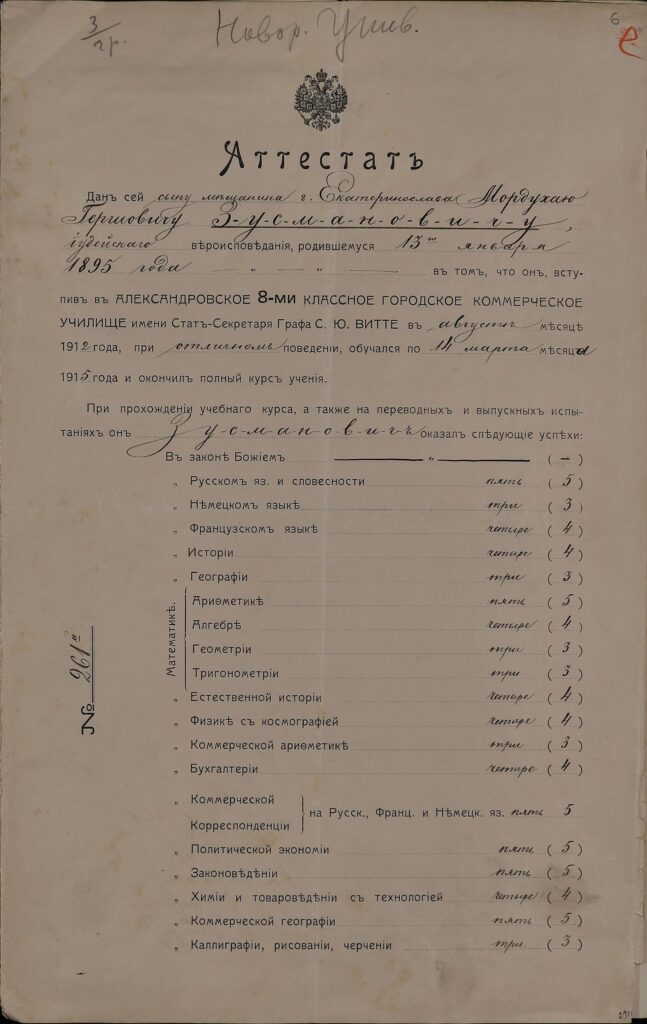 3/гр.
Новор. Унив.
6
Аттестатъ
Данъ сей сыну мѣщанина г. Екатеринослава Мордухаю
Гершовичу З-у-с-м-а-н-о-в-и-ч-у,
іудейскаго вѣроисповѣданія, родившемуся 13го января
1895 года — „ — „ — въ томъ, что онъ, всту-
пивъ въ АЛЕКСАНДРОВСКОЕ 8-МИ КЛАССНОЕ ГОРОДСКОЕ КОММЕРЧЕСКОЕ
УЧИЛИЩЕ имени Статъ-Секретаря Графа С. Ю. ВИТТЕ въ августѣ мѣсяцѣ
1912 года, при отличномъ поведеніи, обучался по 14 марта мѣсяца
1915 года и окончилъ полный курсъ ученія.
При прохожденіи учебнаго курса, а также на переводныхъ и выпускныхъ испы-
таніяхъ онъ З-у-с-м-а-н-о-в-и-ч-ъ оказалъ слѣдующіе успѣхи:
Въ законѣ Божіемъ — „ — ( — )
„ Русскомъ яз. и словесности пять ( 5 )
„ Нѣмецкомъ языкѣ три ( 3 )
„ Французскомъ языкѣ четыре ( 4 )
„ Исторіи четыре ( 4 )
„ Географіи три ( 3 )
Математикѣ.
Ариѳметикѣ пять ( 5 )
Алгебрѣ четыре ( 4 )
Геометріи три ( 3 )
Тригонометріи три ( 3 )
„ Естественной исторіи четыре ( 4 )
„ Физикѣ съ космографіей четыре ( 4 )
„ Коммерческой ариѳметикѣ три ( 3 )
„ Бухгалтеріи четыре ( 4 )
„ Коммерческой
Корреспонденціи
на Русск., Франц. и Нѣмецк. яз. пять 5
„ Политической экономіи пять ( 5 )
„ Законовѣдѣніи пять ( 5 )
„ Химіи и товаровѣдѣніи съ технологіей четыре ( 4 )
„ Коммерческой географіи пять ( 5 )
„ Каллиграфіи, рисованіи, черченіи три. ( 3 )
№ 261